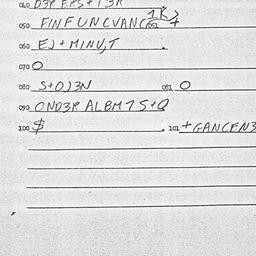 040 D3R EPS+13R
050 FINFUNCVANC 051 1K2+
060 EJ+MINU,T .
070 O
080 S+OJ3N 081 O
090 OND3R ALBM7S+Q
100 $ . 101 +GANCEN3